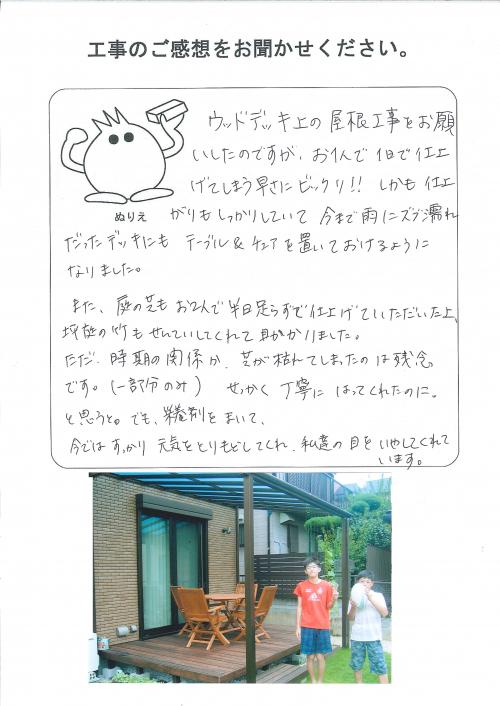 工事のご感想をお聞かせください。
ウッドデッキ上の屋根工事をお願
いしたのですが、お1人で1日で仕上
げてしまう早さにビックリ!! しかも仕上
ぬりえ
がりもしっかりしていて 今まで雨にズブ濡れ
だったデッキにも テーブル&チェアを置いておけるように
なりました。
また、庭の芝もお2人で半日足らずで仕上げていただいた上、
坪庭の竹もせんていしてくれて助かりました。
ただ、時期の関係か、芝が枯れてしまったのは残念
です。(一部分のみ) せっかく丁寧にはってくれたのに。
と思うと。でも、栄養剤をまいて、
今ではすっかり元気をとりもどしてくれ、私達の目をいやしてくれて
います。